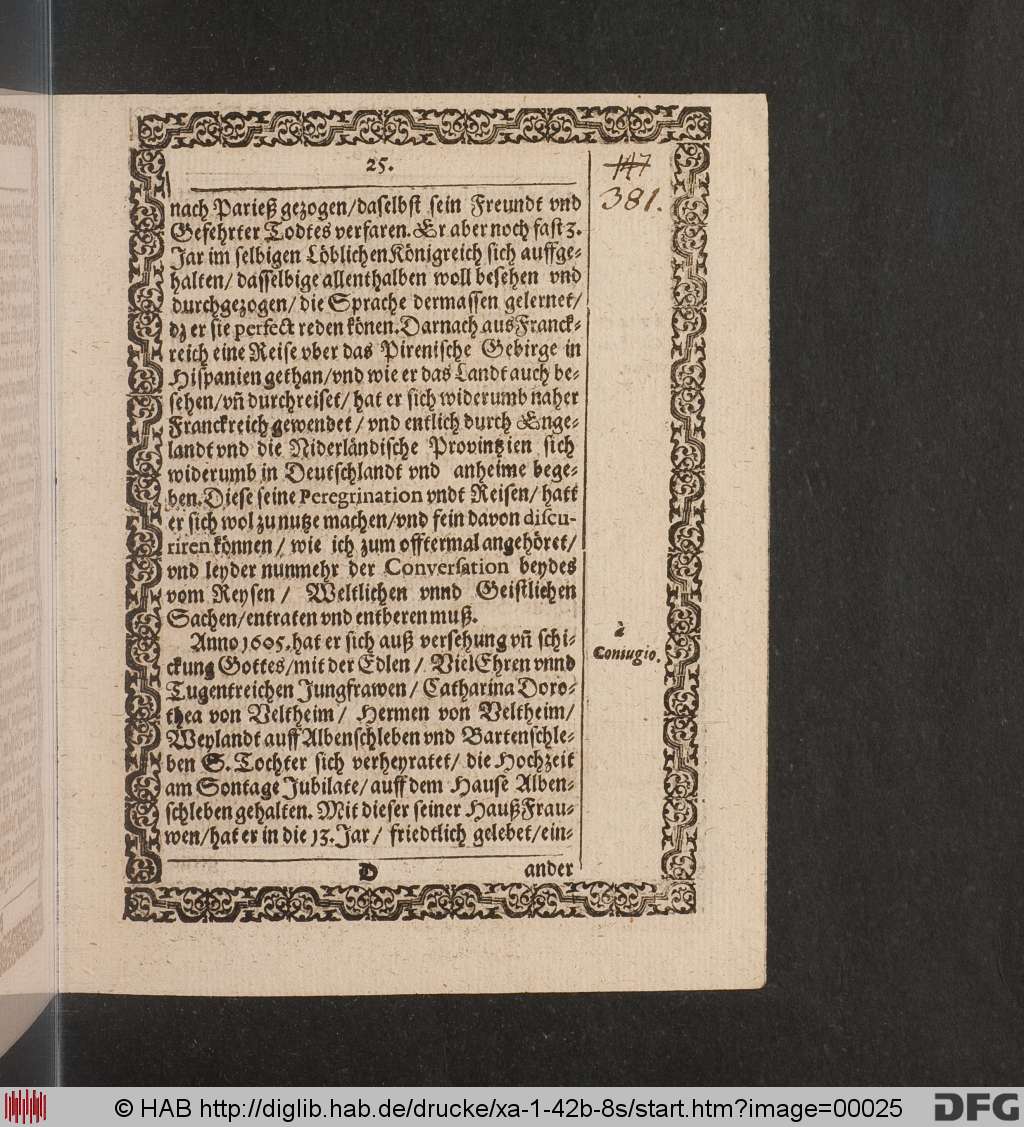 25.
147
381.
nach Parieß gezogen/daselbst sein Freundt vnd
Gefehrter Todtes verfaren. Er aber noch fast 3.
Jar im selbigen Löblichen Königreich sich auffge-
halten/ dasselbige allenthalben woll besehen vnd
durchgezogen/ die Sprache dermassen gelernet/
dz er sie perfect reden könen. Darnach aus Franck-
reich eine Reise vber das Pirenische Gebirge in
Hispanien gethan/vnd wie er das Landt auch be-
sehen/vñ durchreiset/ hat er sich widerumb naher
Franckreich gewendet/ vnd entlich durch Enge-
landt vnd die Niderländische Provintzien sich
widerumb in Deutschlandt vnd anheime bege-
ben. Diese seine Peregrination vndt Reisen/ hatt
er sich wol zu nutze machen/vnd fein davon discu-
riren können/ wie ich zum offtermal angehöret/
vnd leyder nunmehr der Conversation beydes
vom Reysen/ Weltlichen vnnd Geistlichen
Sachen/entraten vnd entberen muß.
Anno 1605. hat er sich auß versehung vñ schi-
ckung Gottes/mit der Edlen/ VielEhren vnnd
Tugentreichen Jungfrawen/ Catharina Doro-
thea von Veltheim/ Hermen von Veltheim/
Weylandt auff Albenschleben vnd Bartenschle-
ben S. Tochter sich verheyratet/ die Hochzeit
am Sontage Jubilate/ auff dem Hause Alben-
schleben gehalten. Mit dieser seiner HaußFrau-
wen/hat er in die 13. Jar/ friedtlich gelebet/ein-
à
Coniugio.
D
ander
© HAB http://diglib.hab.de/drucke/xa-1-42b-8s/start.htm?image=00025
DFG